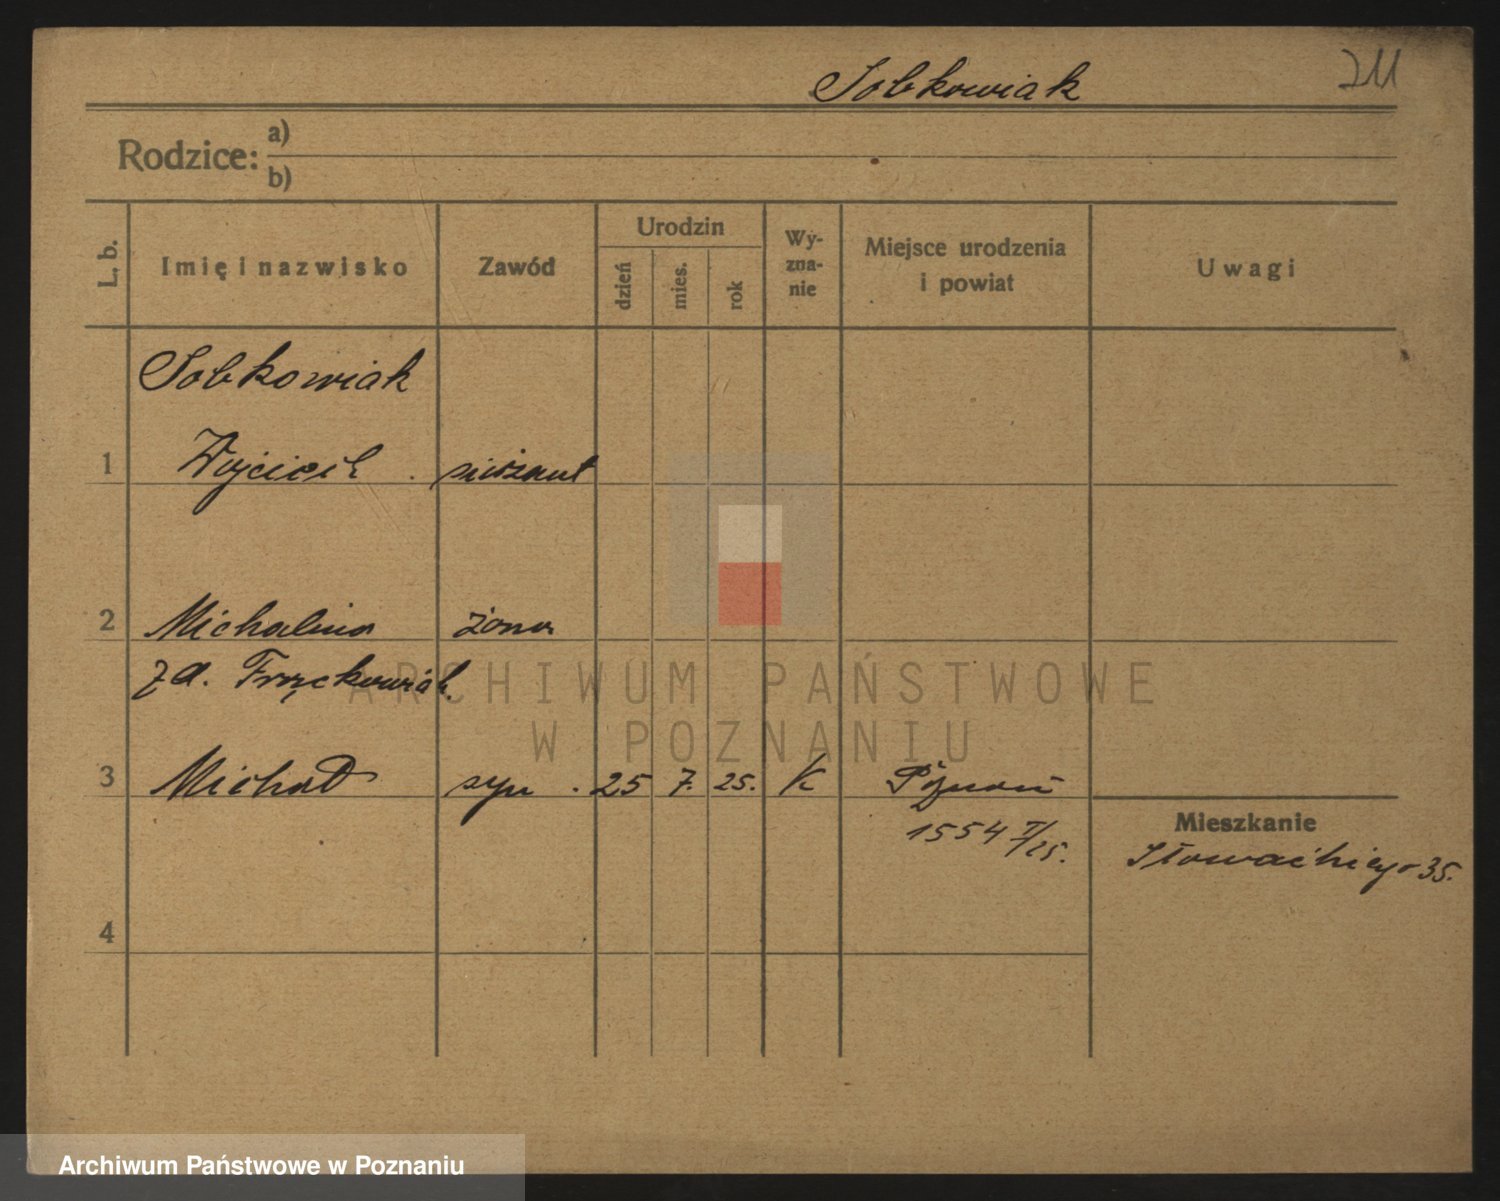 Sobkowiak
211
Rodzice:
a)
b)
L. b.
Imię i nazwisko
Zawód
Urodzin
dzień
mies.
rok
Wy-
zna-
nie
Miejsce urodzenia
i powiat
Uwagi
Sobkowiak
1 Wojciech sierżant
2 Michalina żona
z d. Frąckowiak
3 Michał syn 25 7. 25. k Poznań
1554
Mieszkanie
Słowackiego 35.
4
ARCHIWUM PAŃSTWOWE
W POZNANIU
Archiwum Państwowe w Poznaniu